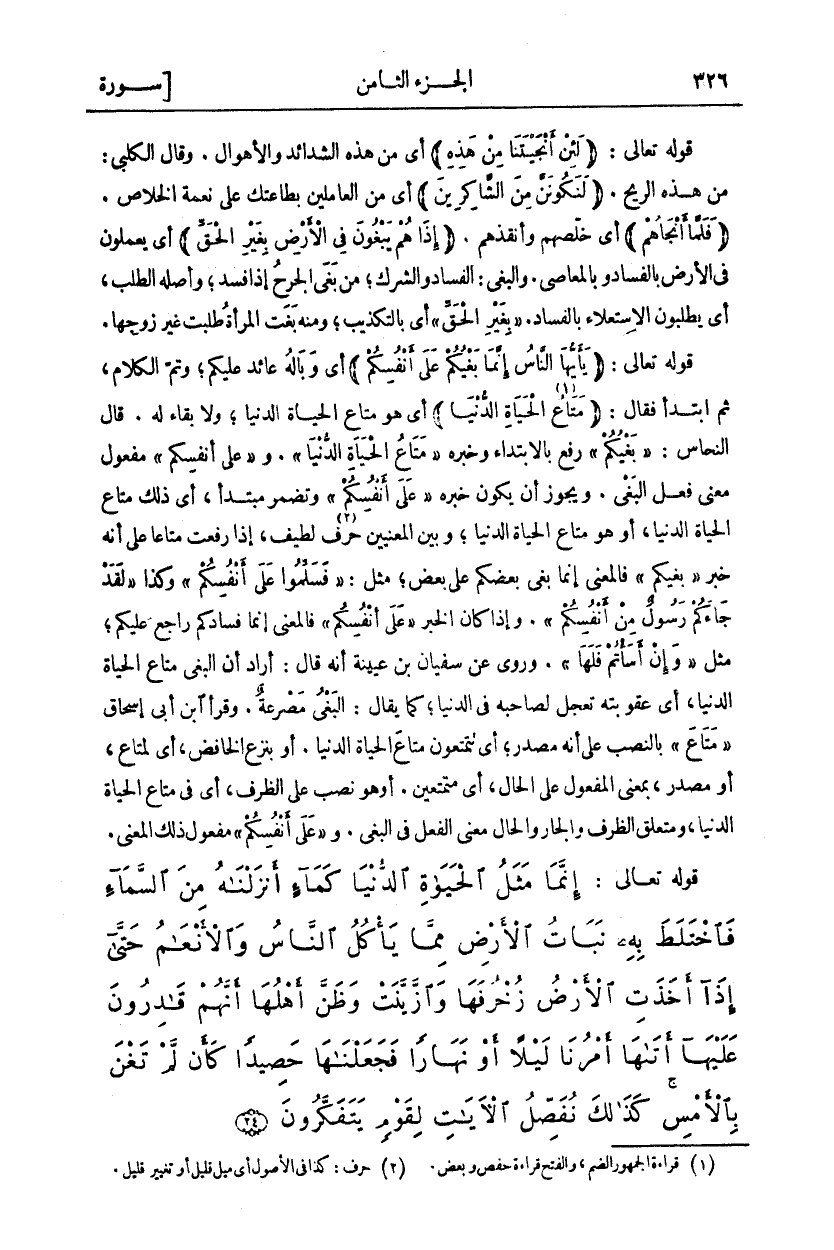 ٣٢٦ الجـــزء الثـامن [ســـورة
قوله تعالى : ﴿ لَئِنْ أَنْجَيْتَنَا مِنْ هَذِهِ ﴾ أى من هذه الشدائد والأهوال . وقال الكلبى :
من هـذه الريح . ﴿ لَنَكُونَنَّ مِنَ الشَّاكِرِينَ ﴾ أى من العاملين بطاعتك على نعمة الخلاص .
﴿ فَلَمَّا أَنْجَاهُمْ ﴾ أى خلّصهم وأنقذهم . ﴿ إِذَا هُمْ يَبْغُونَ فِى الْأَرْضِ بِغَيْرِ الْحَقِّ ﴾ أى يعملون
فى الأرض بالفساد و بالمعاصى. والبغى : الفساد والشرك ؛ من بَغَى الجرحُ إذا فسد ؛ وأصله الطلب ،
أى يطلبون الاستعلاء بالفساد. « بِغَيْرِ الْحَقِّ » أى بالتكذيب ؛ ومنه بَغَت المرأة طلبت غير زوجها.
قوله تعالى : ﴿ يَأَيُّهَا النَّاسُ إِنَّمَا بَغْيُكُمْ عَلَى أَنْفُسِكُمْ ﴾ أى وَبَالُهُ عائد عليكم ؛ وتمّ الكلام ،
ثم ابتـدأ فقال : ﴿ مَتَاعُ الْحَيَاةِ الدُّنْيَا ﴾ (١) أى هو متاع الحيـاة الدنيا ؛ ولا بقاء له . قال
النحاس : « بَغْيُكُمْ » رفع بالابتداء وخبره « مَتَاعُ الْحَيَاةِ الدُّنْيَا » . و « على أنفسكم » مفعول
معنى فعـل البَغْى . ويجوز أن يكون خبره « عَلَى أَنْفُسِكُمْ » وتضمر مبتـدأ ، أى ذلك متاع
الحياة الدنيا ، أو هو متاع الحياة الدنيا ؛ وبين المعنيين حرف (٢) لطيف ، إذا رفعت متاعا على أنه
خبر « بغيكم » فالمعنى إنما بغى بعضكم على بعض ؛ مثل : « فَسَلِّمُوا عَلَى أَنْفُسِكُمْ » وكذا « لَقَدْ
جَاءَكُمْ رَسُولٌ مِنْ أَنْفُسِكُمْ » . و إذا كان الخبر « عَلَى أَنْفُسِكُمْ » فالمعنى إنما فسادكم راجع عليكم ؛
مثل « وَإِنْ أَسَأْتُمْ فَلَهَا » . وروى عن سفيان بن عيينة أنه قال : أراد أن البغى متاع الحياة
الدنيا ، أى عقوبته تعجل لصاحبه فى الدنيا ؛ كما يقال : البَغْىُ مَصْرعةٌ . وقرأ آبن أبى إسحاق
« مَتَاعَ » بالنصب على أنه مصدر ؛ أى تتمتعون متاعَ الحياة الدنيا . أو بنزع الخافض ، أى لمتاع ،
أو مصدر ، بمعنى المفعول على الحال ، أى متمتعين . أو هو نصب على الظرف ، أى فى متاع الحياة
الدنيا ، ومتعلق الظرف والجار والحال معنى الفعل فى البغى . و « عَلَى أَنْفُسِكُمْ » مفعول ذلك المعنى .
قوله تعـالى : إِنَّمَا مَثَلُ ٱلْحَيَوٰةِ ٱلدُّنْيَا كَمَآءٍ أَنزَلْنَـٰهُ مِنَ ٱلسَّمَآءِ
فَٱخْتَلَطَ بِهِۦ نَبَاتُ ٱلْأَرْضِ مِمَّا يَأْكُلُ ٱلنَّاسُ وَٱلْأَنْعَـٰمُ حَتَّىٰٓ
إِذَآ أَخَذَتِ ٱلْأَرْضُ زُخْرُفَهَا وَٱزَّيَّنَتْ وَظَنَّ أَهْلُهَآ أَنَّهُمْ قَـٰدِرُونَ
عَلَيْهَآ أَتَىٰهَآ أَمْرُنَا لَيْلًا أَوْ نَهَارًا فَجَعَلْنَـٰهَا حَصِيدًا كَأَن لَّمْ تَغْنَ
بِٱلْأَمْسِ ۚ كَذَٰلِكَ نُفَصِّلُ ٱلْآيَـٰتِ لِقَوْمٍ يَتَفَكَّرُونَ ﴿٢٤﴾
(١) قراءة الجمهور الضم ، والفتح قراءة حفص و بعض . (٢) حرف : كذا فى الأصول أى ميل قليل أو تغيير قليل .